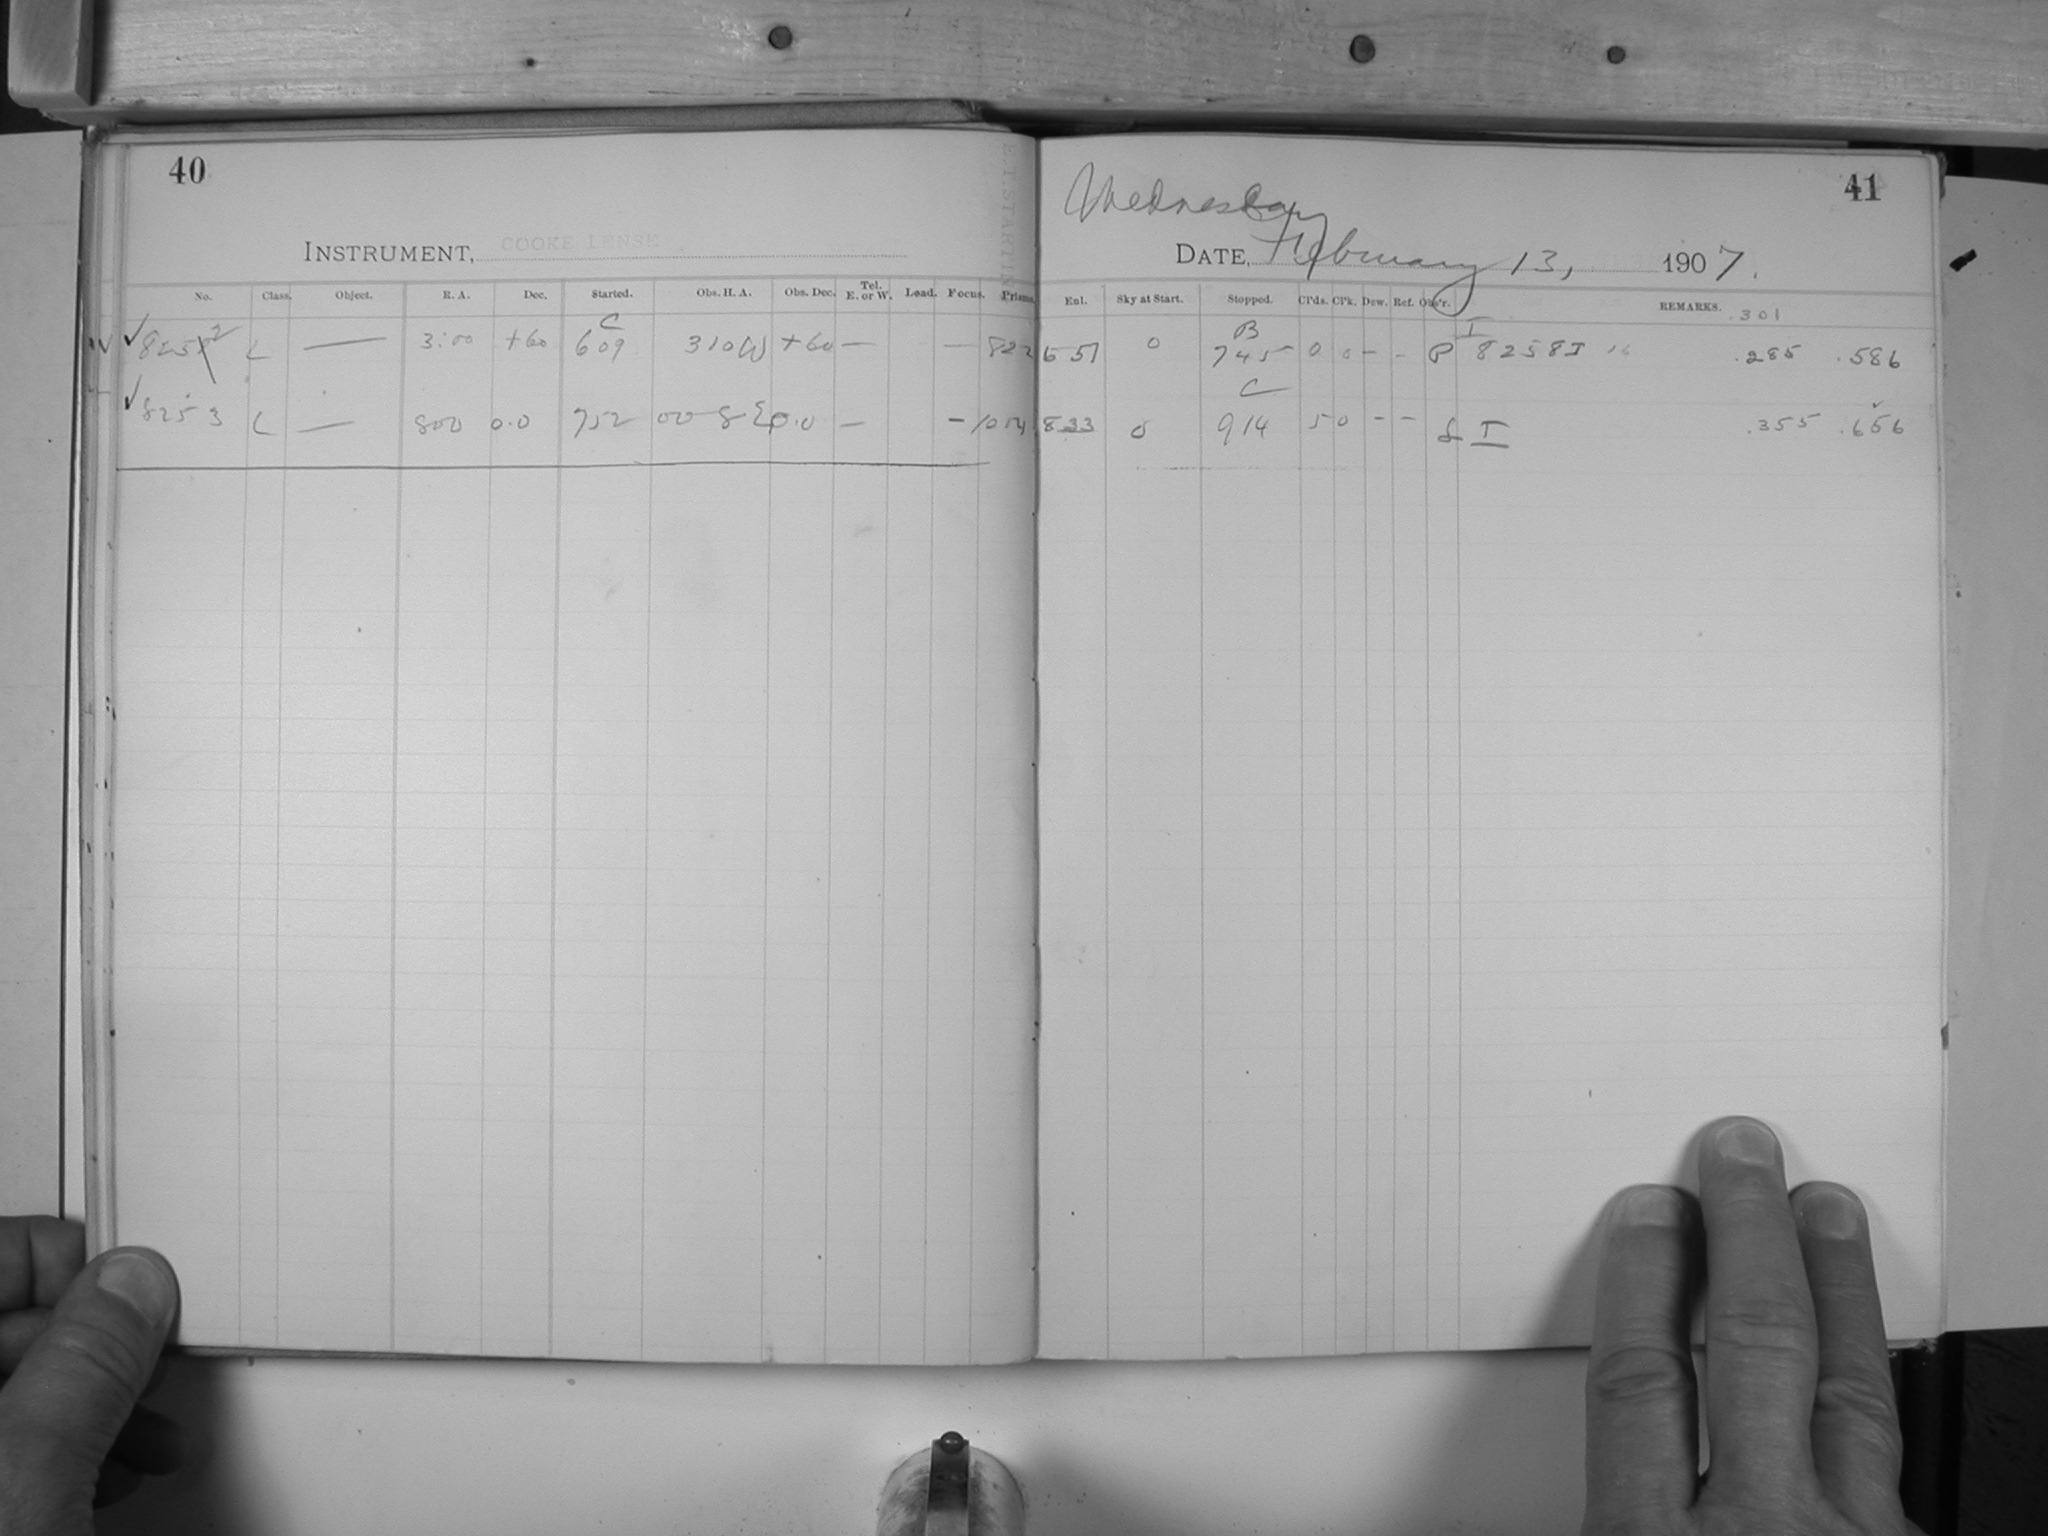 40
INSTRUMENT, COOKE LENSE
No. Class. Object. R. A. Dec. Started. Obs. H. A. Obs. Dec. Tel. E. or W. Load. Focus. Prisms.
C
✓ 8252 L — 3:00 +60 609 310W +60 — — 822
✓ 8253 L — 800 0.0 752 00 8 E 0.0 — — 1054
41
Wednesday
DATE, February 13, 1907.
Exl. Sky at Start. Stopped. Cl'ds. Cl'k. Dew. Ref. Obs'r. REMARKS.
B I .301
651 0 745 0 0 – – P 8258I 16 .285 .586
C
833 0 914 5 0 – – I .355 .656